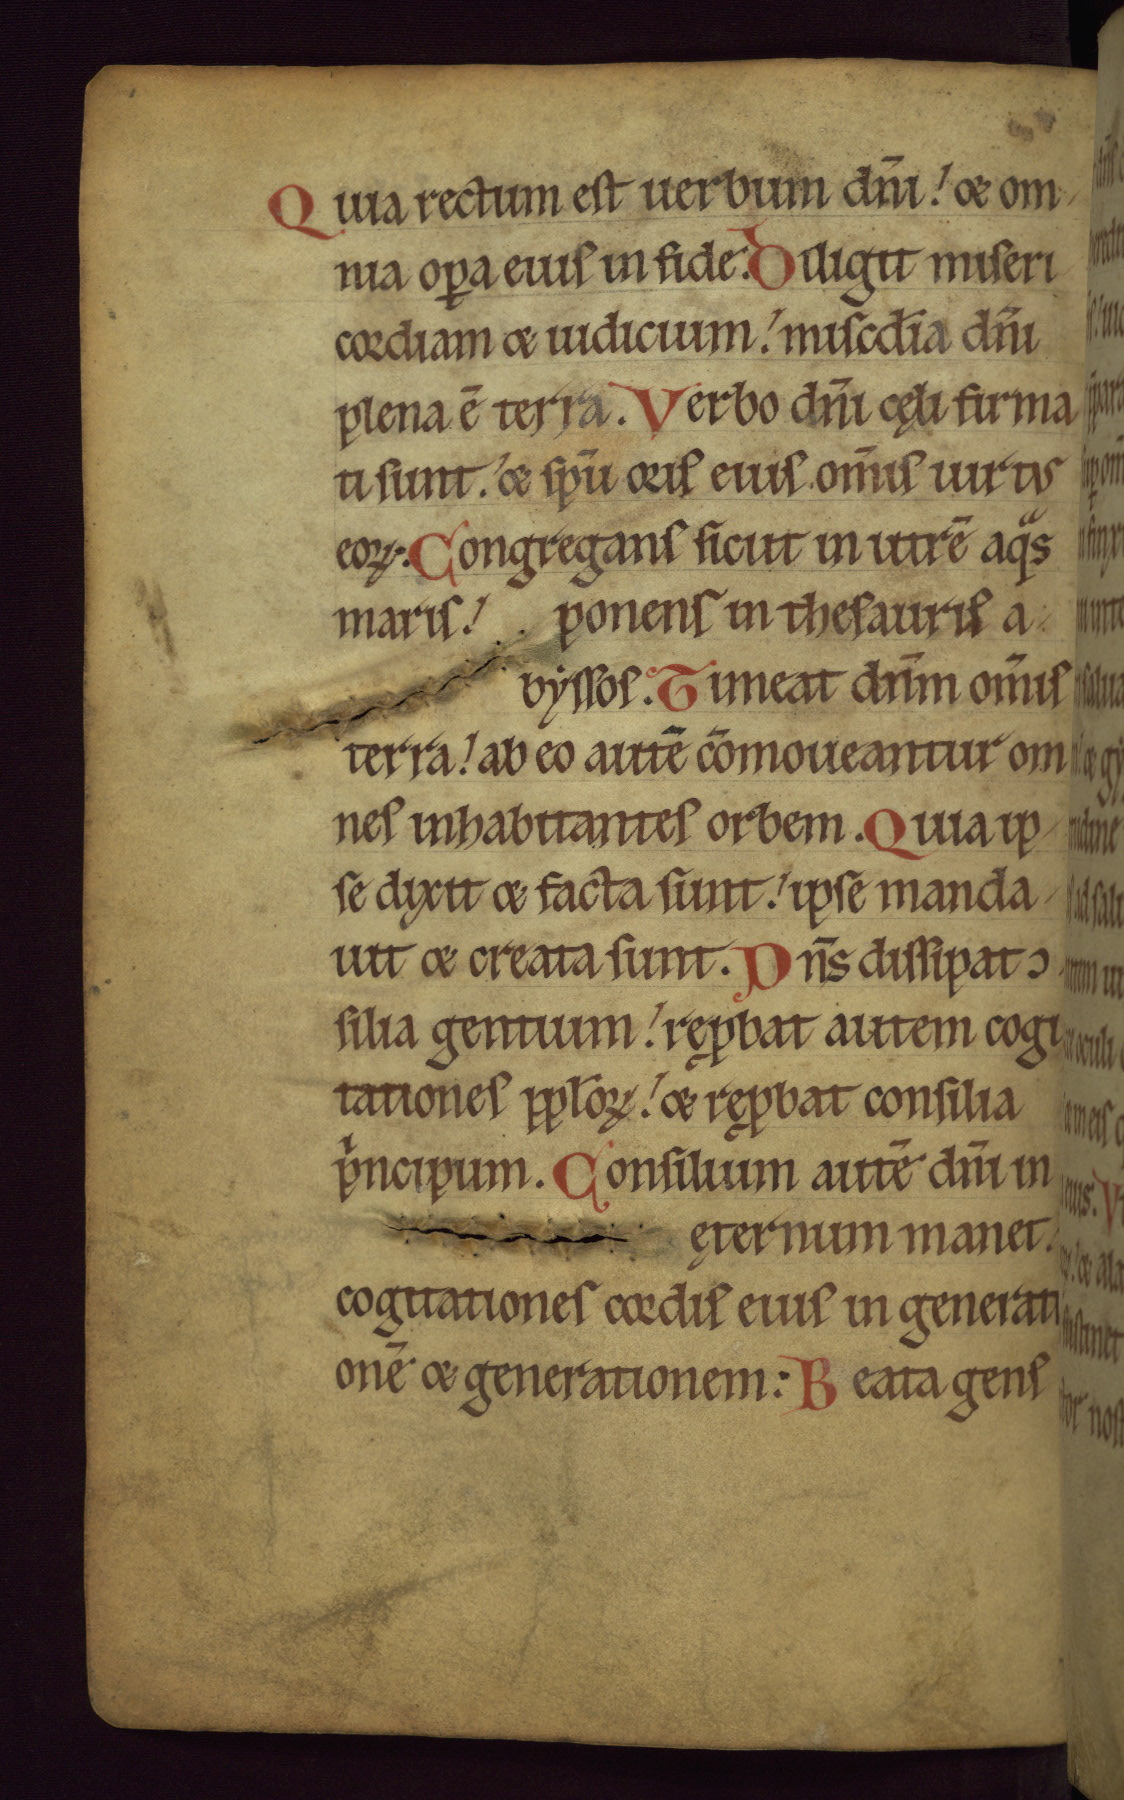 Quia rectum est uerbum dñi! & om
nia oꝑa eius in fide. Diligit miseri
cordiam & iudicium! misc̄dia dñi
plena ē terra. Verbo dñi cęli firma
ti sunt! & sp̄u oris eius om̄is uirtꝰ
eoꝝ. Congregans sicut in utrē aqͣs
maris! ponens in thesauris a
byssos. Timeat dn̄m om̄is
terra! ab eo autē c̄omoueantur om
nes inhabitantes orbem. Quia ip
se dixit & facta sunt! ipse manda
uit & creata sunt. Dn̄s dissipat ↄ
silia gentium! ręꝓbat autem cogi
tationes ppl̄oꝝ! & ręꝓbat consilia
pͥncipum. Consilium autē dñi in
ęternum manet.
cogitationes cordis eius in generati
onē & generationem: Beata gens